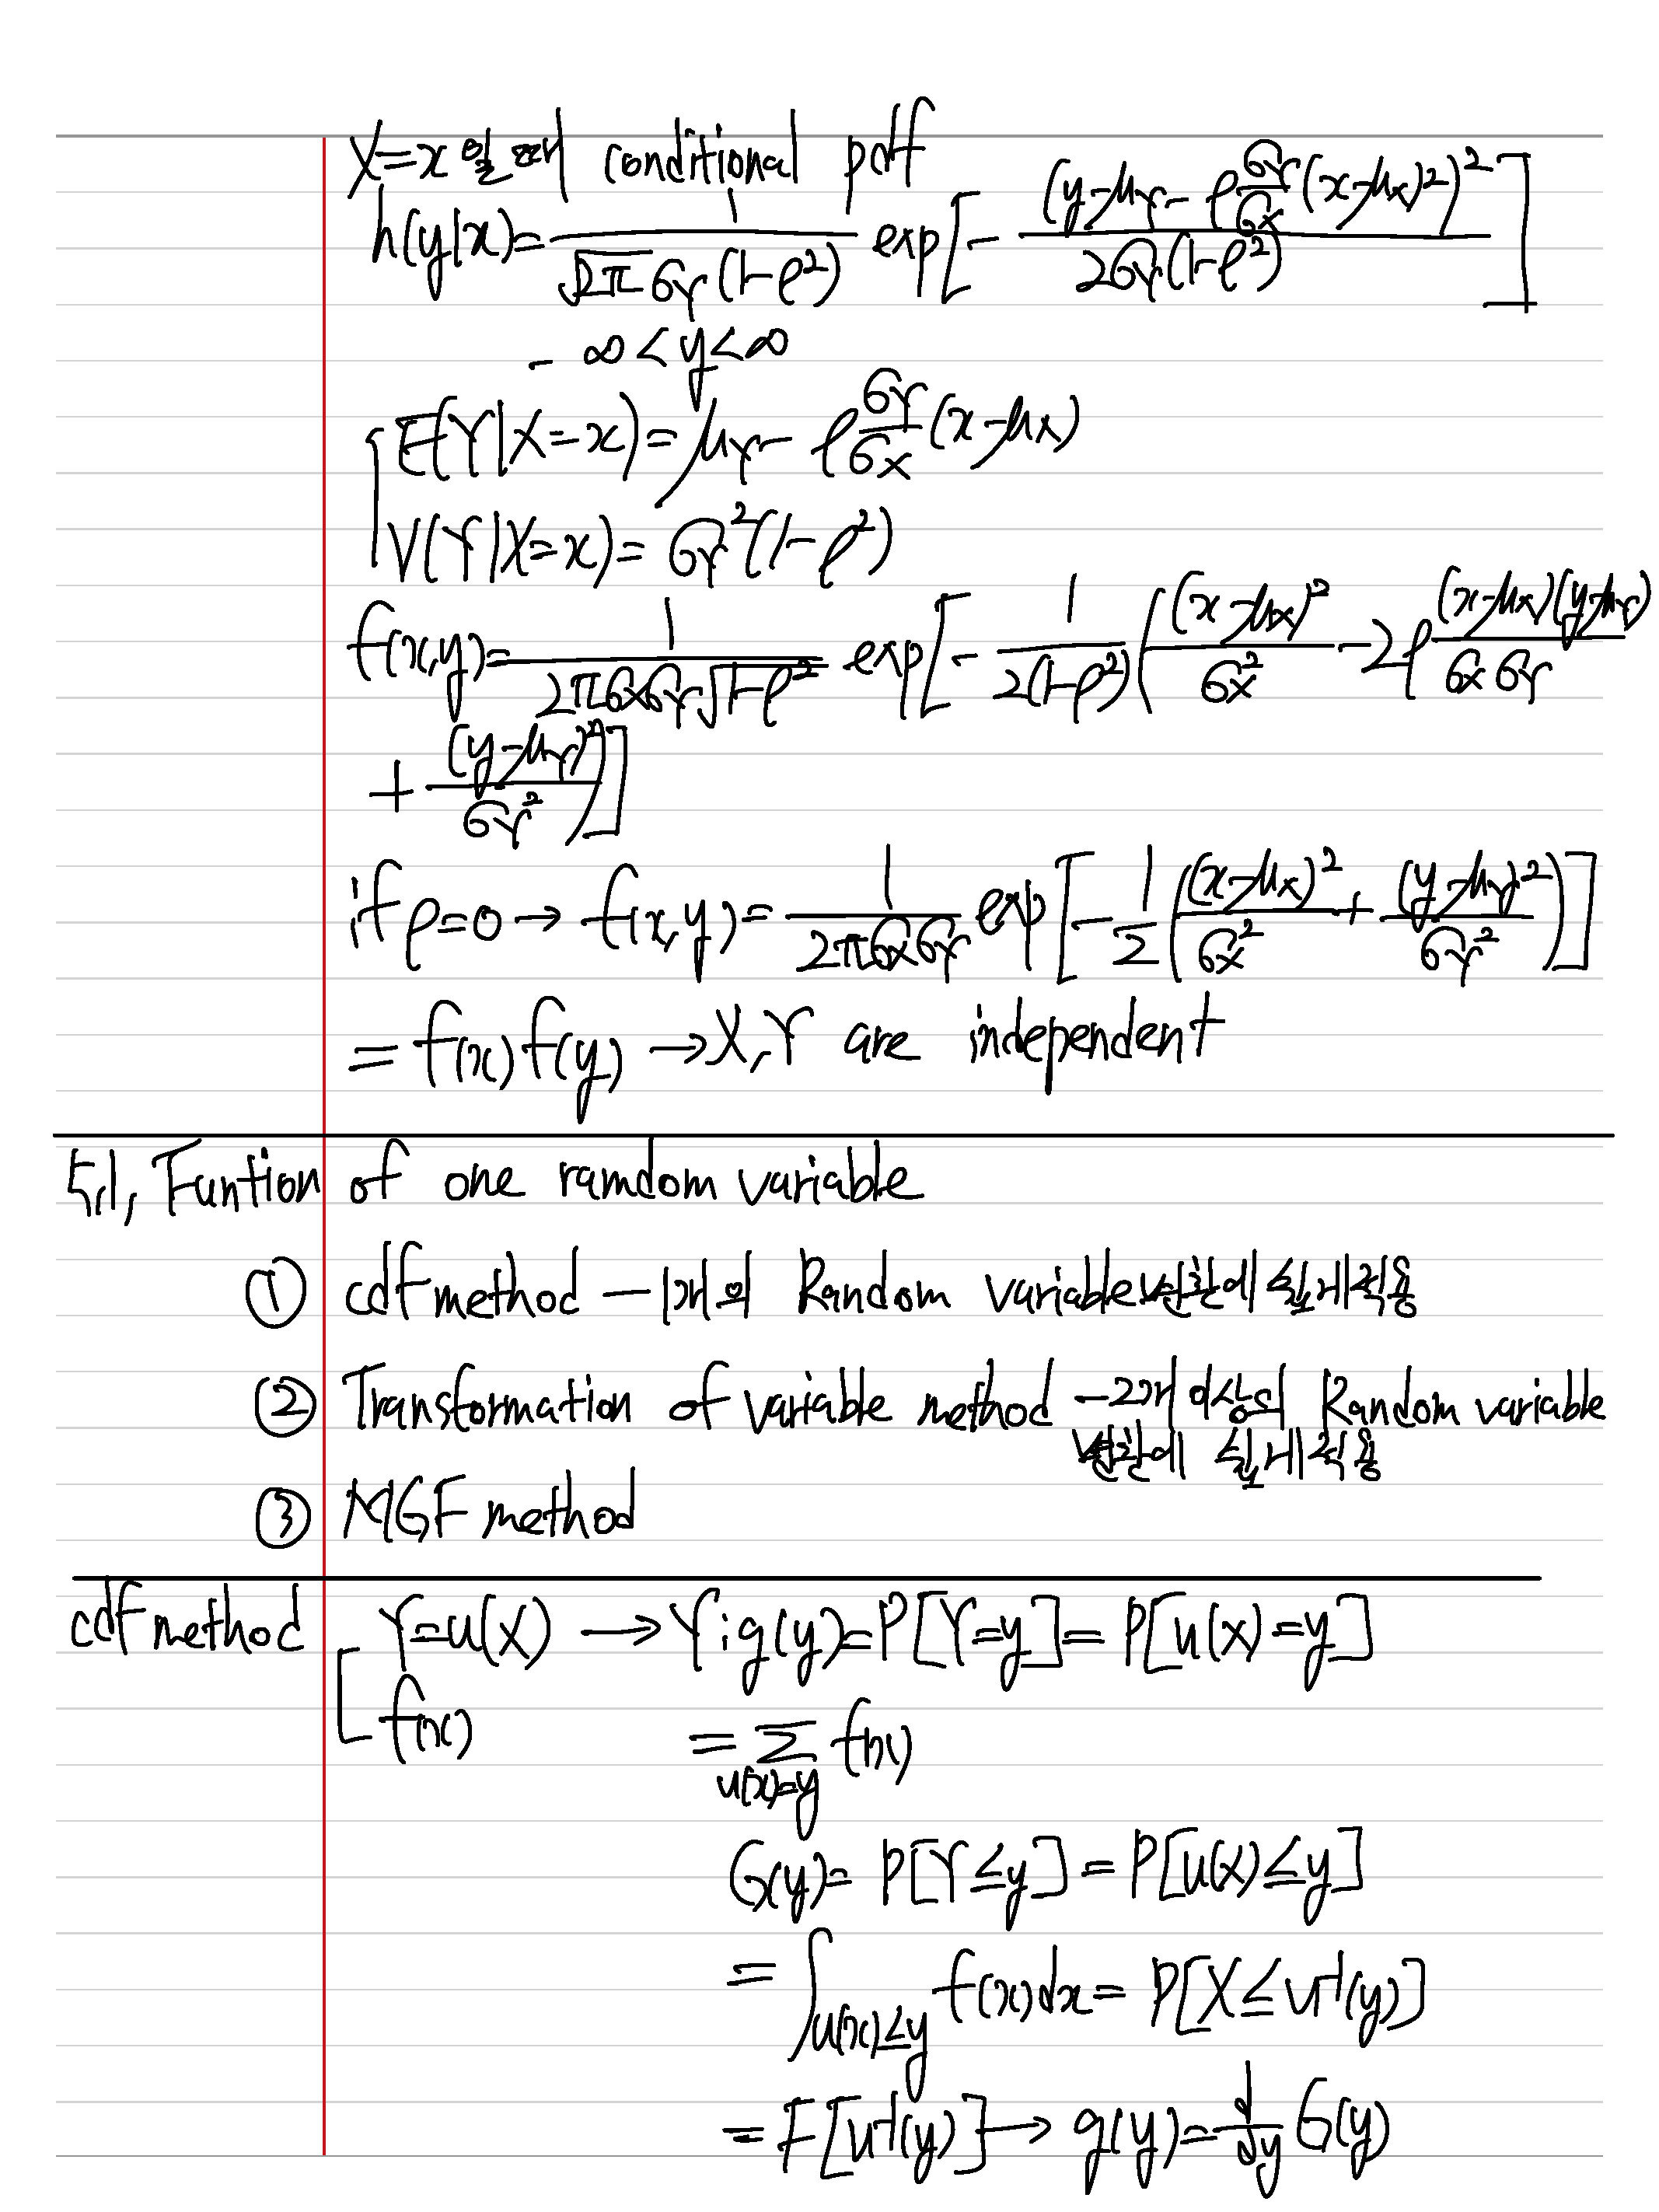 X=x 일 때 conditional pdf
h(y|x)= 1/(√2π σY(1-ρ²)) exp[- (y-μY - ρ σY/σX (x-μX)²)² / 2σY(1-ρ²)]
- ∞ < y < ∞
E(Y|X=x) = μY - ρ σY/σX (x-μX)
V(Y|X=x) = σY²(1-ρ²)
f(x,y)= 1/(2πσXσY√1-ρ²) exp[- 1/2(1-ρ²) ((x-μX)²/σX² - 2ρ (x-μX)(y-μY)/σXσY
+ (y-μY)²/σY²)]
if ρ=0 → f(x,y)= 1/2πσXσY exp[-1/2 ((x-μX)²/σX² + (y-μY)²/σY²)]
= f(x)f(y) → X,Y are independent
5,1, Funtion of one ramdom variable
① cdf method – 1개의 Random variable변환에 쉽게 적용
② Transformation of variable method – 2개 이상의 Random variable
변환에 쉽게 적용
③ MGF method
cdf method Y=u(X) → Y : g(y)=P[Y=y]= P[u(x)=y]
f(x) = Σ u(x)=y f(x)
G(y)= P[Y≤y] = P[u(x)≤y]
= ∫u(x)≤y f(x)dx = P[X≤u⁻¹(y)]
= F[u⁻¹(y)] → g(y)= d/dy G(y)